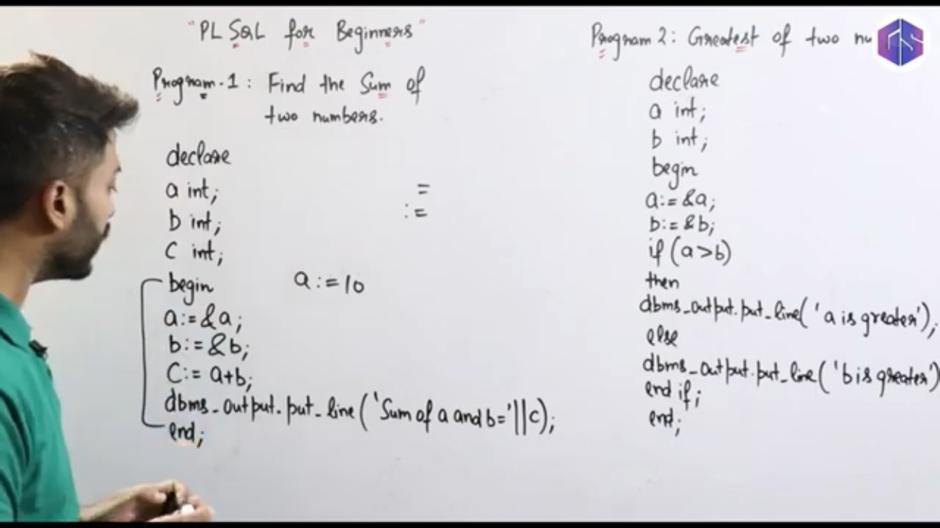 "PL SQL for Beginners"
Program-1: Find the Sum of
two numbers.
declare
a int;
b int;
c int;
begin
a:=&a;
b:=&b;
c:=a+b;
dbms_output.put_line('Sum of a and b='||c);
end;
=
:=
a:=10
Program 2: Greatest of two
declare
a int;
b int;
begin
a:=&a;
b:=&b;
if (a>b)
then
dbms_output.put_line('a is greater');
else
dbms_output.put_line('b is greater')
end if;
end;